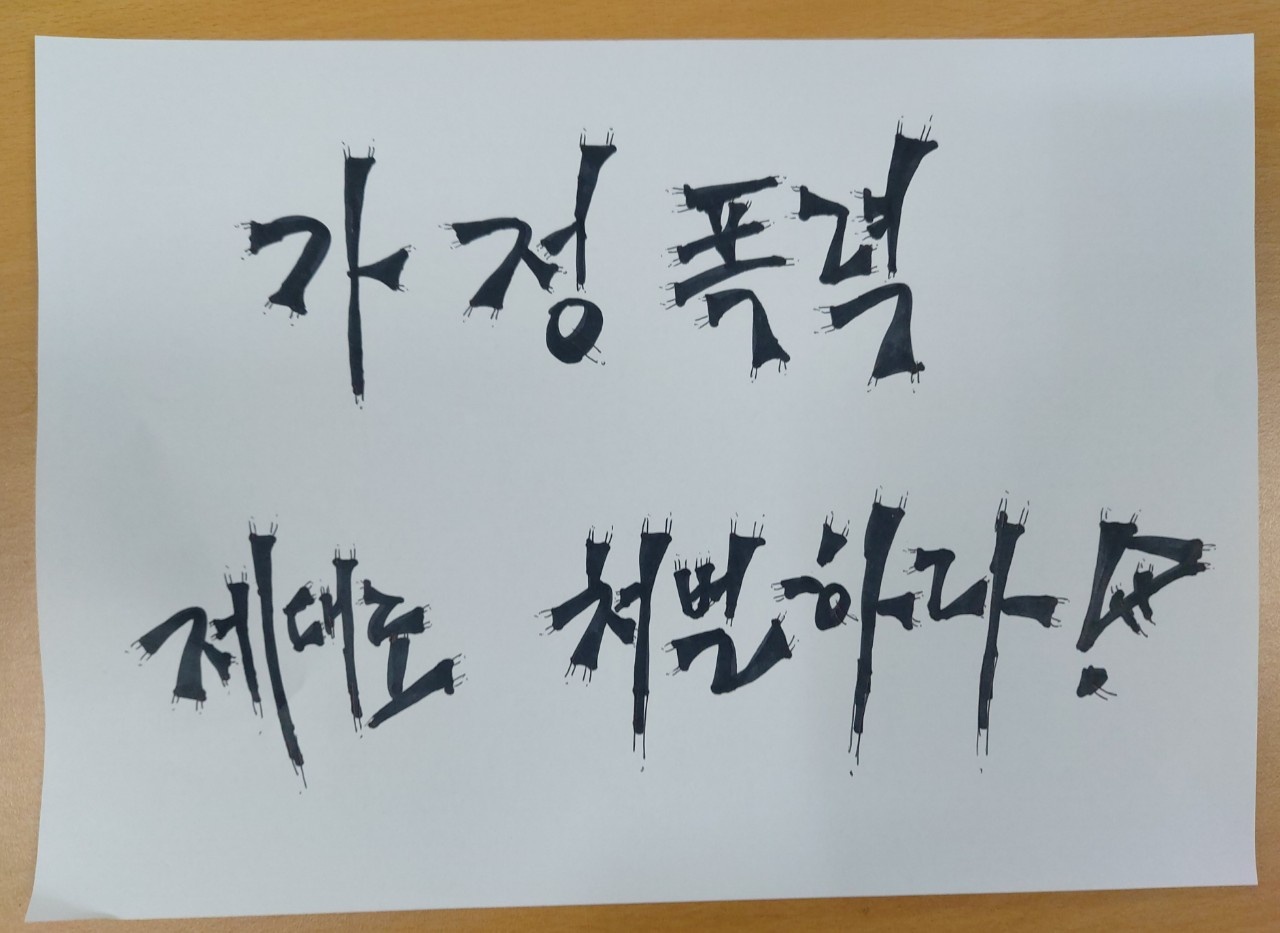 가정폭력
제대로 처벌하라!